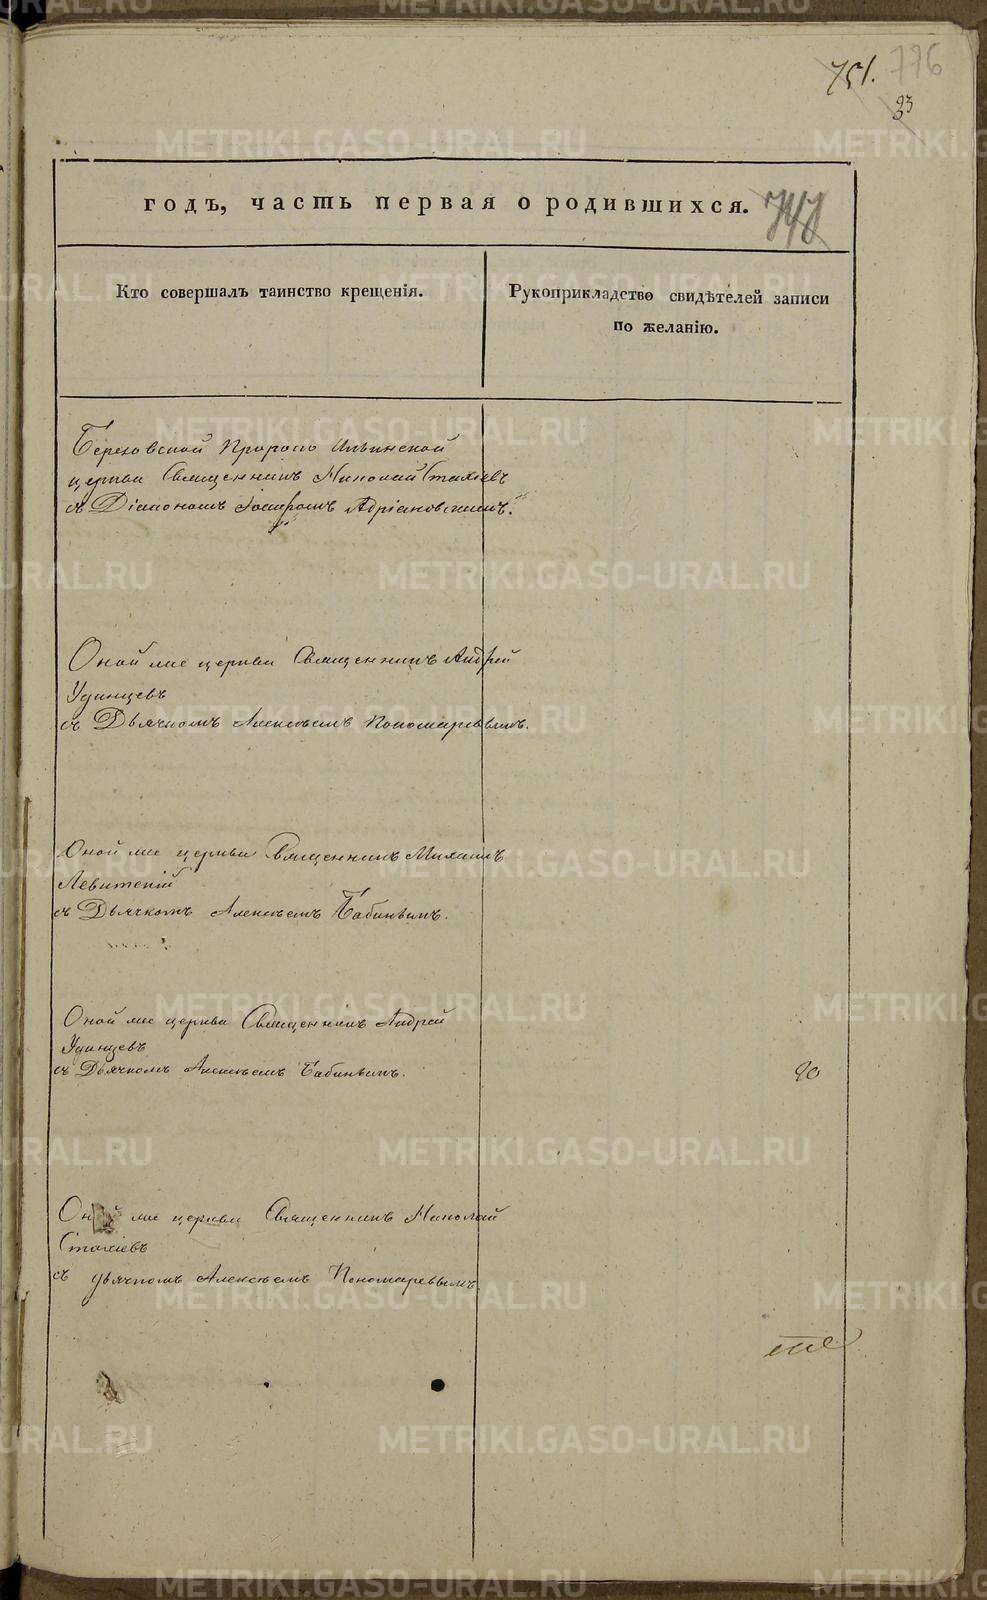 751. 776
23
годъ, часть первая о родившихся. 748
Кто совершалъ таинство крещенія.
Рукоприкладство свидѣтелей записи
по желанію.
Березовской Пророко Ильинской
церкви Священникъ Николай Стахіевъ
съ Діакономъ Іоасафомъ Адріановскимъ.
Оной же церкви Священникъ Андрей
Удинцевъ
съ Дьячкомъ Алексѣемъ Пономаревымъ.
Оной же церкви Священникъ Михаилъ
Левитскій
съ Дьячкомъ Алексѣемъ Бабинымъ.
Оной же церкви Священникъ Андрей
Удинцевъ
съ Дьячкомъ Алексѣемъ Бабинымъ.
20
Оной же церкви Священникъ Николай
Стахіевъ
съ дьячкомъ Алексѣемъ Пономаревымъ
METRIKI.GASO-URAL.RU